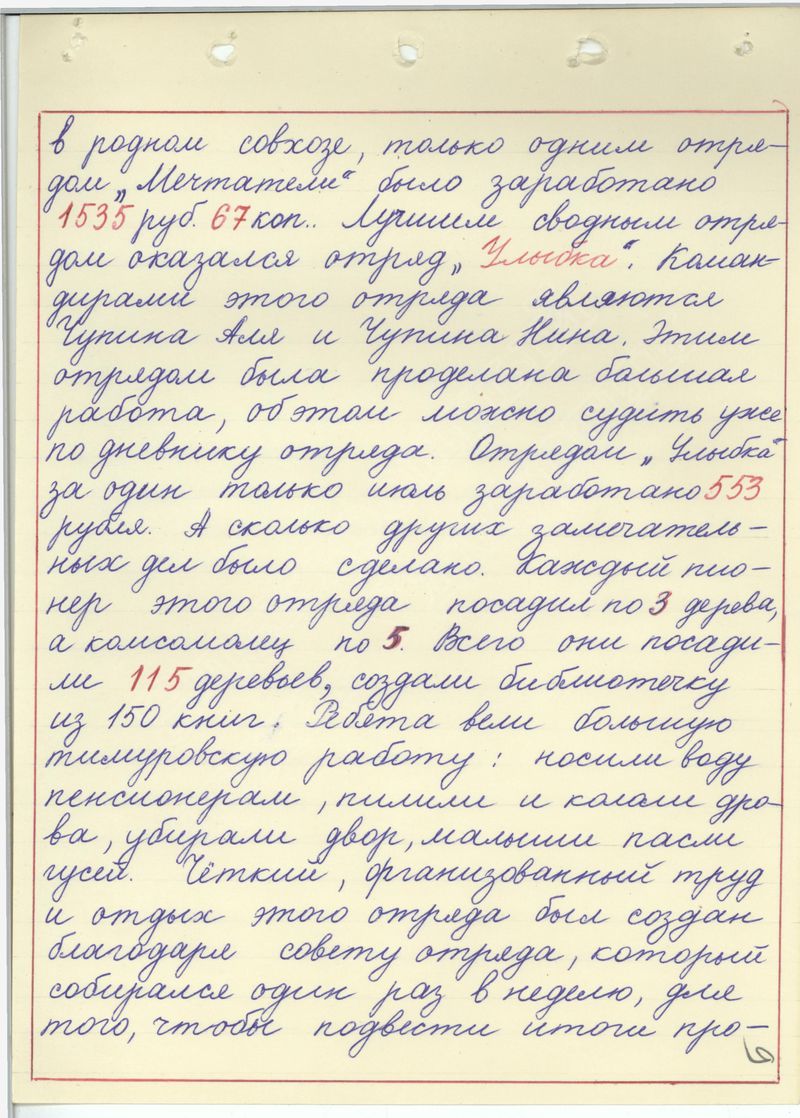 в родном совхозе, только одним отря-
дом „Мечтатели“ было заработано
1535 руб. 67 коп.. Лучшем сводным отря-
дом оказался отряд „Улыбка“. Коман-
дирами этого отряда являются
Чупина Аля и Чупина Нина. Этим
отрядом была проделана большая
работа, об этом можно судить уже
по дневнику отряда. Отрядом „Улыбка“
за один только июль заработано 553
рубля. А сколько других замечатель-
ных дел было сделано. Каждый пио-
нер этого отряда посадил по 3 дерева,
а комсомолец по 5. Всего они посади-
ли 115 деревьев, создали библиотечку
из 150 книг. Ребята вели большую
тимуровскую работу: носили воду
пенсионерам, пилили и кололи дро-
ва, убирали двор, малыши пасли
гусей. Чёткий, организованный труд
и отдых этого отряда был создан
благодаря совету отряда, который
собирался один раз в неделю, для
того, чтобы подвести итоги про-
6